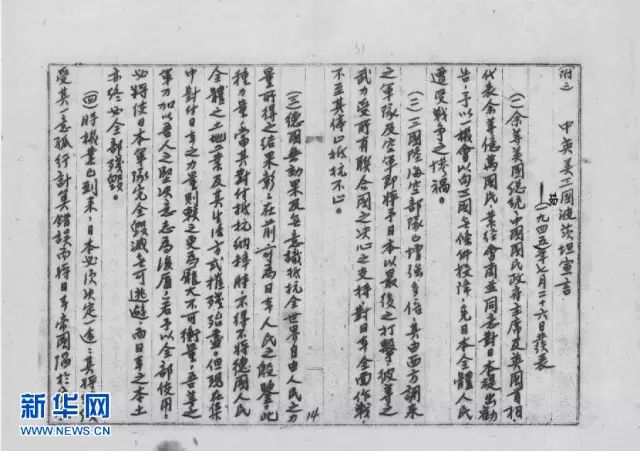 (附二)
中英美三國波茨坦宣言
一九四五年七月二十六日發表
(一)余等美國總統、中國國民政府主席及英國首相，
代表余等億萬國民，業經會商並同意對日本提出勸
告，予以一機會以向三國無條件投降，免日本全體人民
遭受戰爭之慘禍。
(二)三國陸海空部隊已增強多倍，其由西方調來
之軍隊及空軍即將予日本以最後之打擊，彼等之
武力受所有聯合國之決心之支持對日本全面作戰，
不至其停止抵抗不止。
(三)德國無効果及無意識抵抗全世界自由人民之力
量所得之結果，彰彰在前，可為日本人民之殷鑒，此
種力量，當其對付抵抗納粹時不得不將德國人民
全體之土地工業及其生活方式摧殘殆盡，但現在集
中對付日本之力量則較之更為龐大不可衡量，吾等之
軍力加以吾人之堅決意志為後盾，若予以全部使用，
必將使日本軍隊完全毀滅無可逃避，而日本之本土
亦終必全部殘毀。
(四)時機業已到來，日本必須決定一途：其將
受其一意孤行計算錯誤而將日本帝國陷於
14
新华网
WWW.NEWS.CN